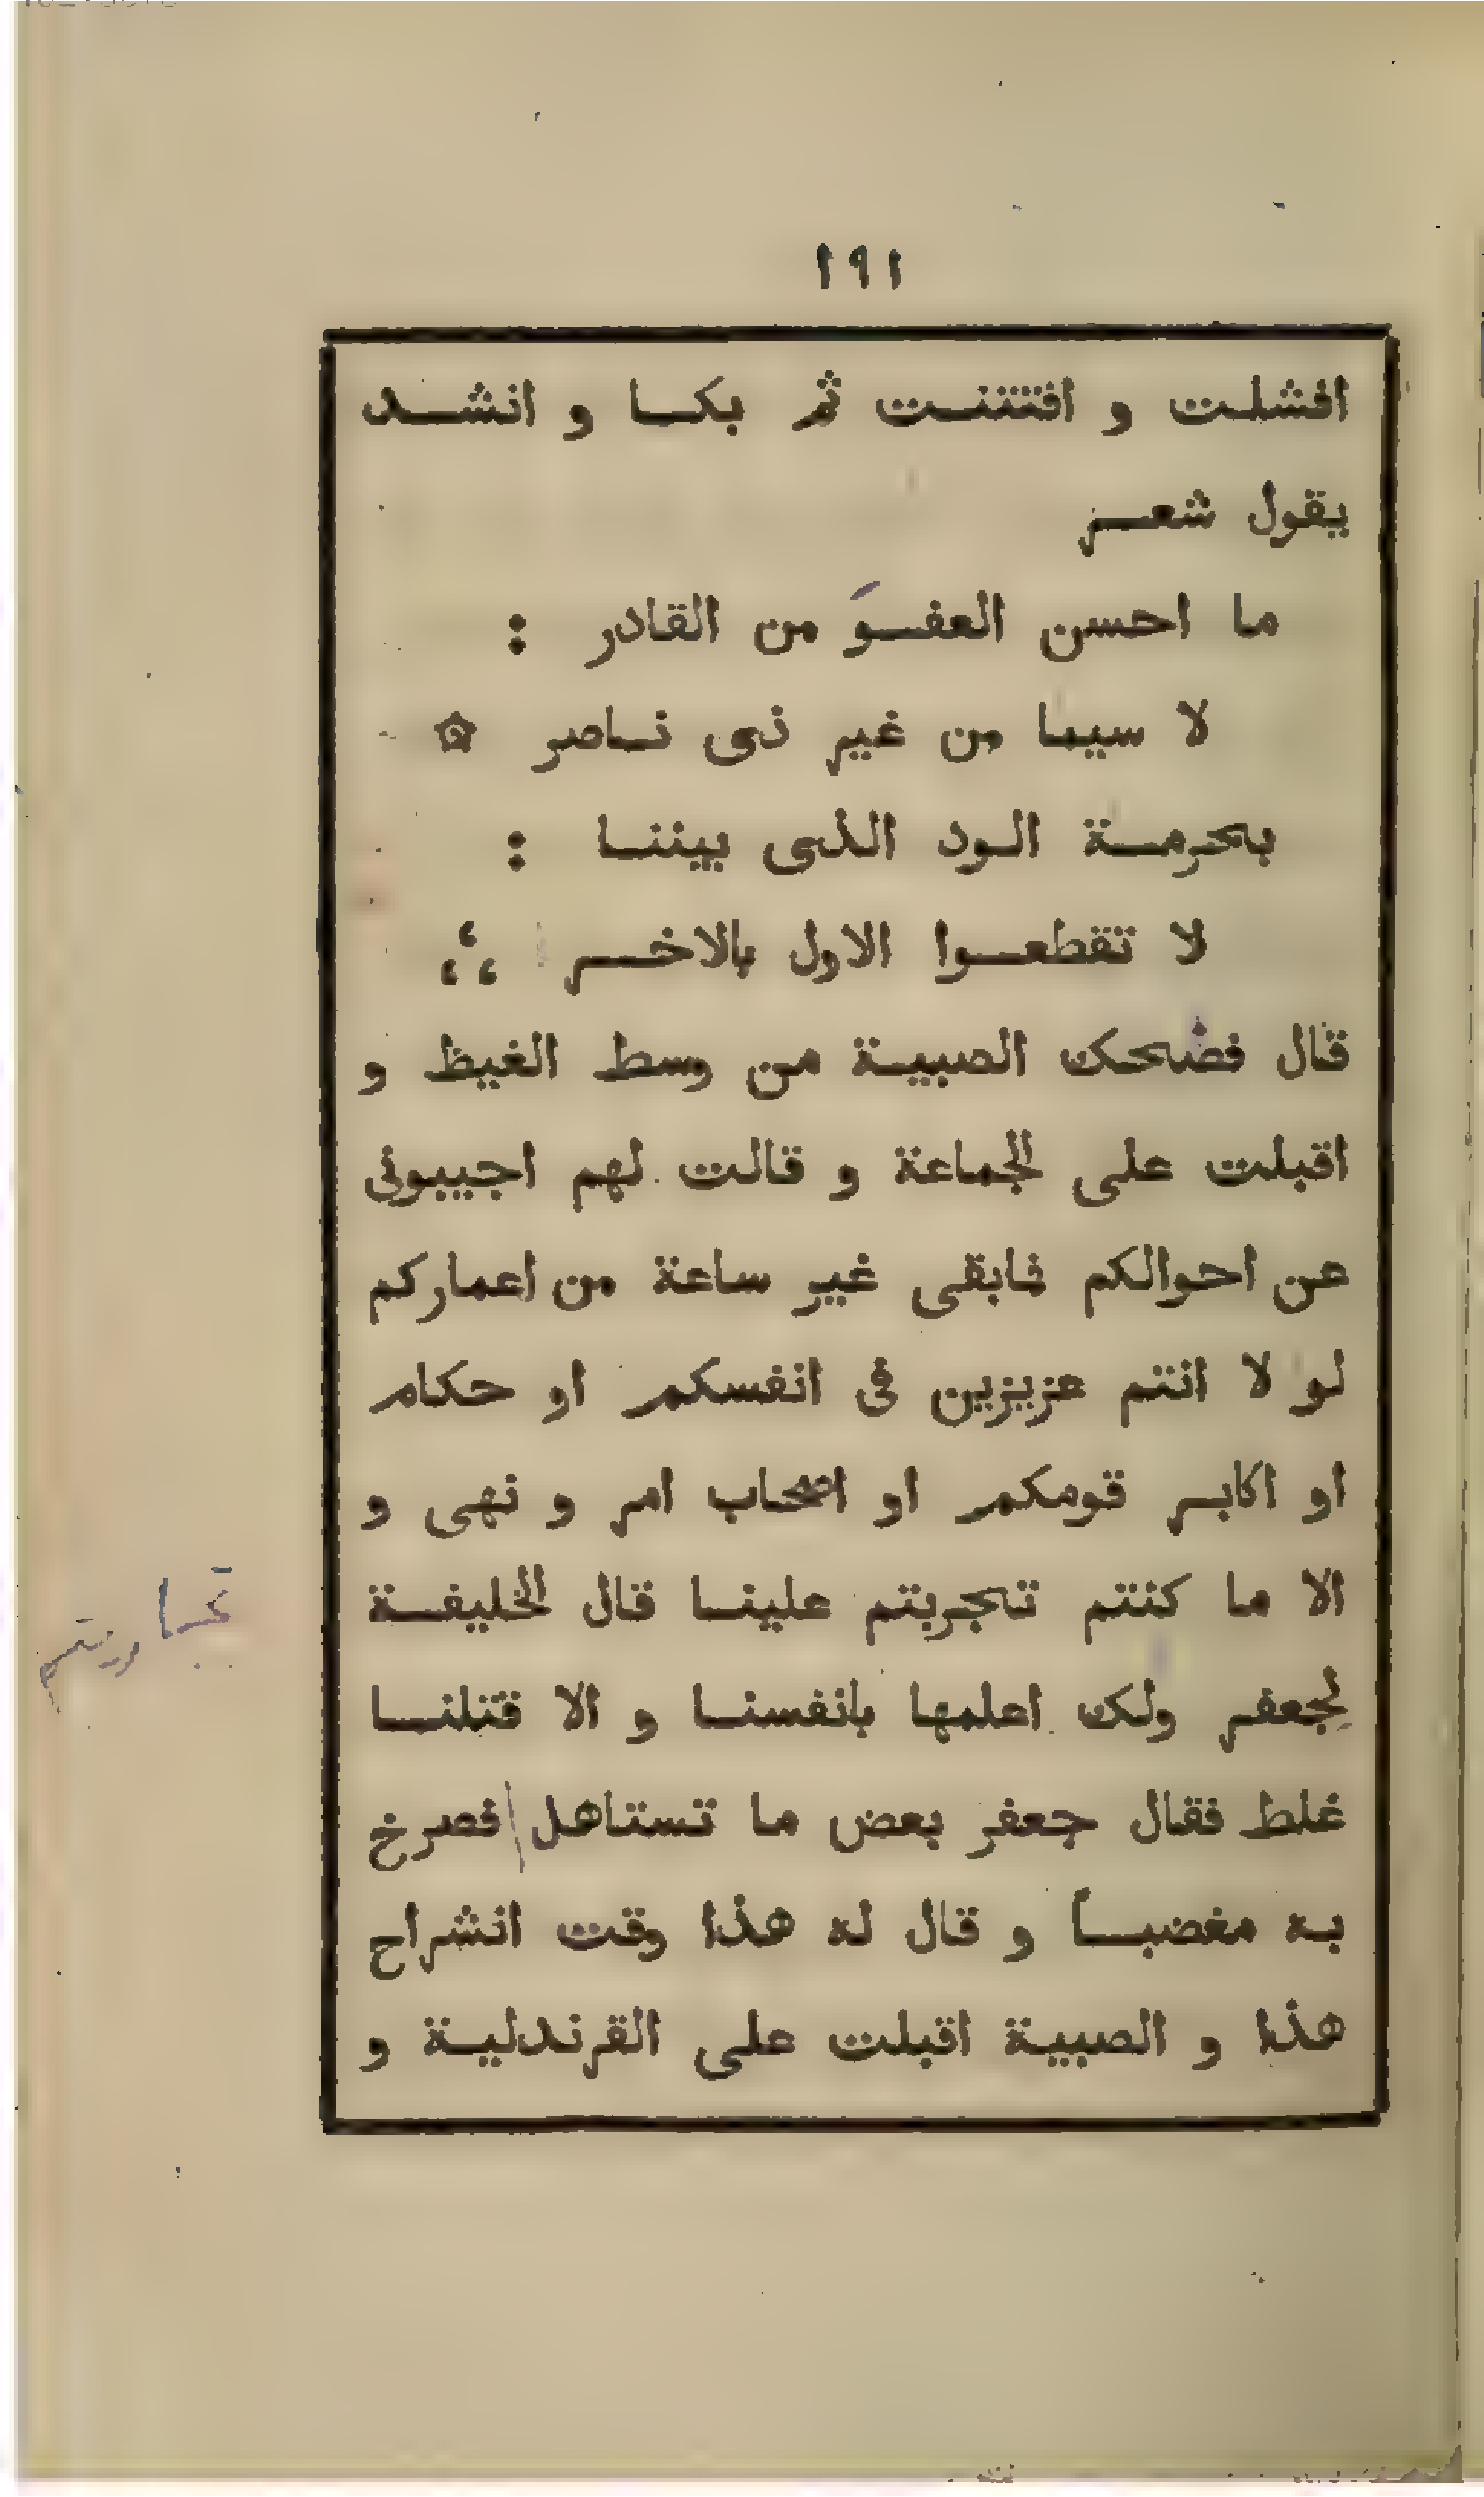 ١٩١
افشلت و افتتنت ثم بكا و انشد
يقول شعر
ما احسن العفوَ من القادر :
لا سيما من غير ذى ناصر
بحرمة الود الذى بيننا :
لا تقطعوا الاول بالاخر
قال فضحك الصبية من وسط الغيظ و
اقبلت على الجماعة و قالت لهم اجيبونى
عن احوالكم فابقى غير ساعة من اعماركم
لو لا انتم عزيزين فى انفسكم او حكام
او اكابر قومكم او اصحاب امر و نهى و
الا ما كنتم تجربتم علينا قال الخليفة
لجعفر ولك اعلمها بانفسنا و الا قتلنا
غلط فقال جعفر بعض ما تستاهل فصرخ
به مغضباً و قال له هذا وقت انشراح
هذا و الصبية اقبلت على القرندلية و